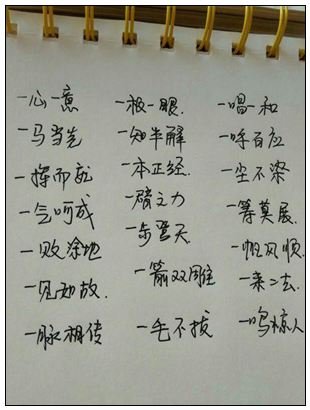 一心一意 一板一眼. 一唱一和
一马当先 一知半解 一呼百应
一挥而就 一本正经. 一尘不染
一气呵成 一臂之力 一筹莫展.
一败涂地 一步登天 一帆风顺.
一见如故. 一箭双雕 一来二去.
一脉相传 一毛不拔 一鸣惊人